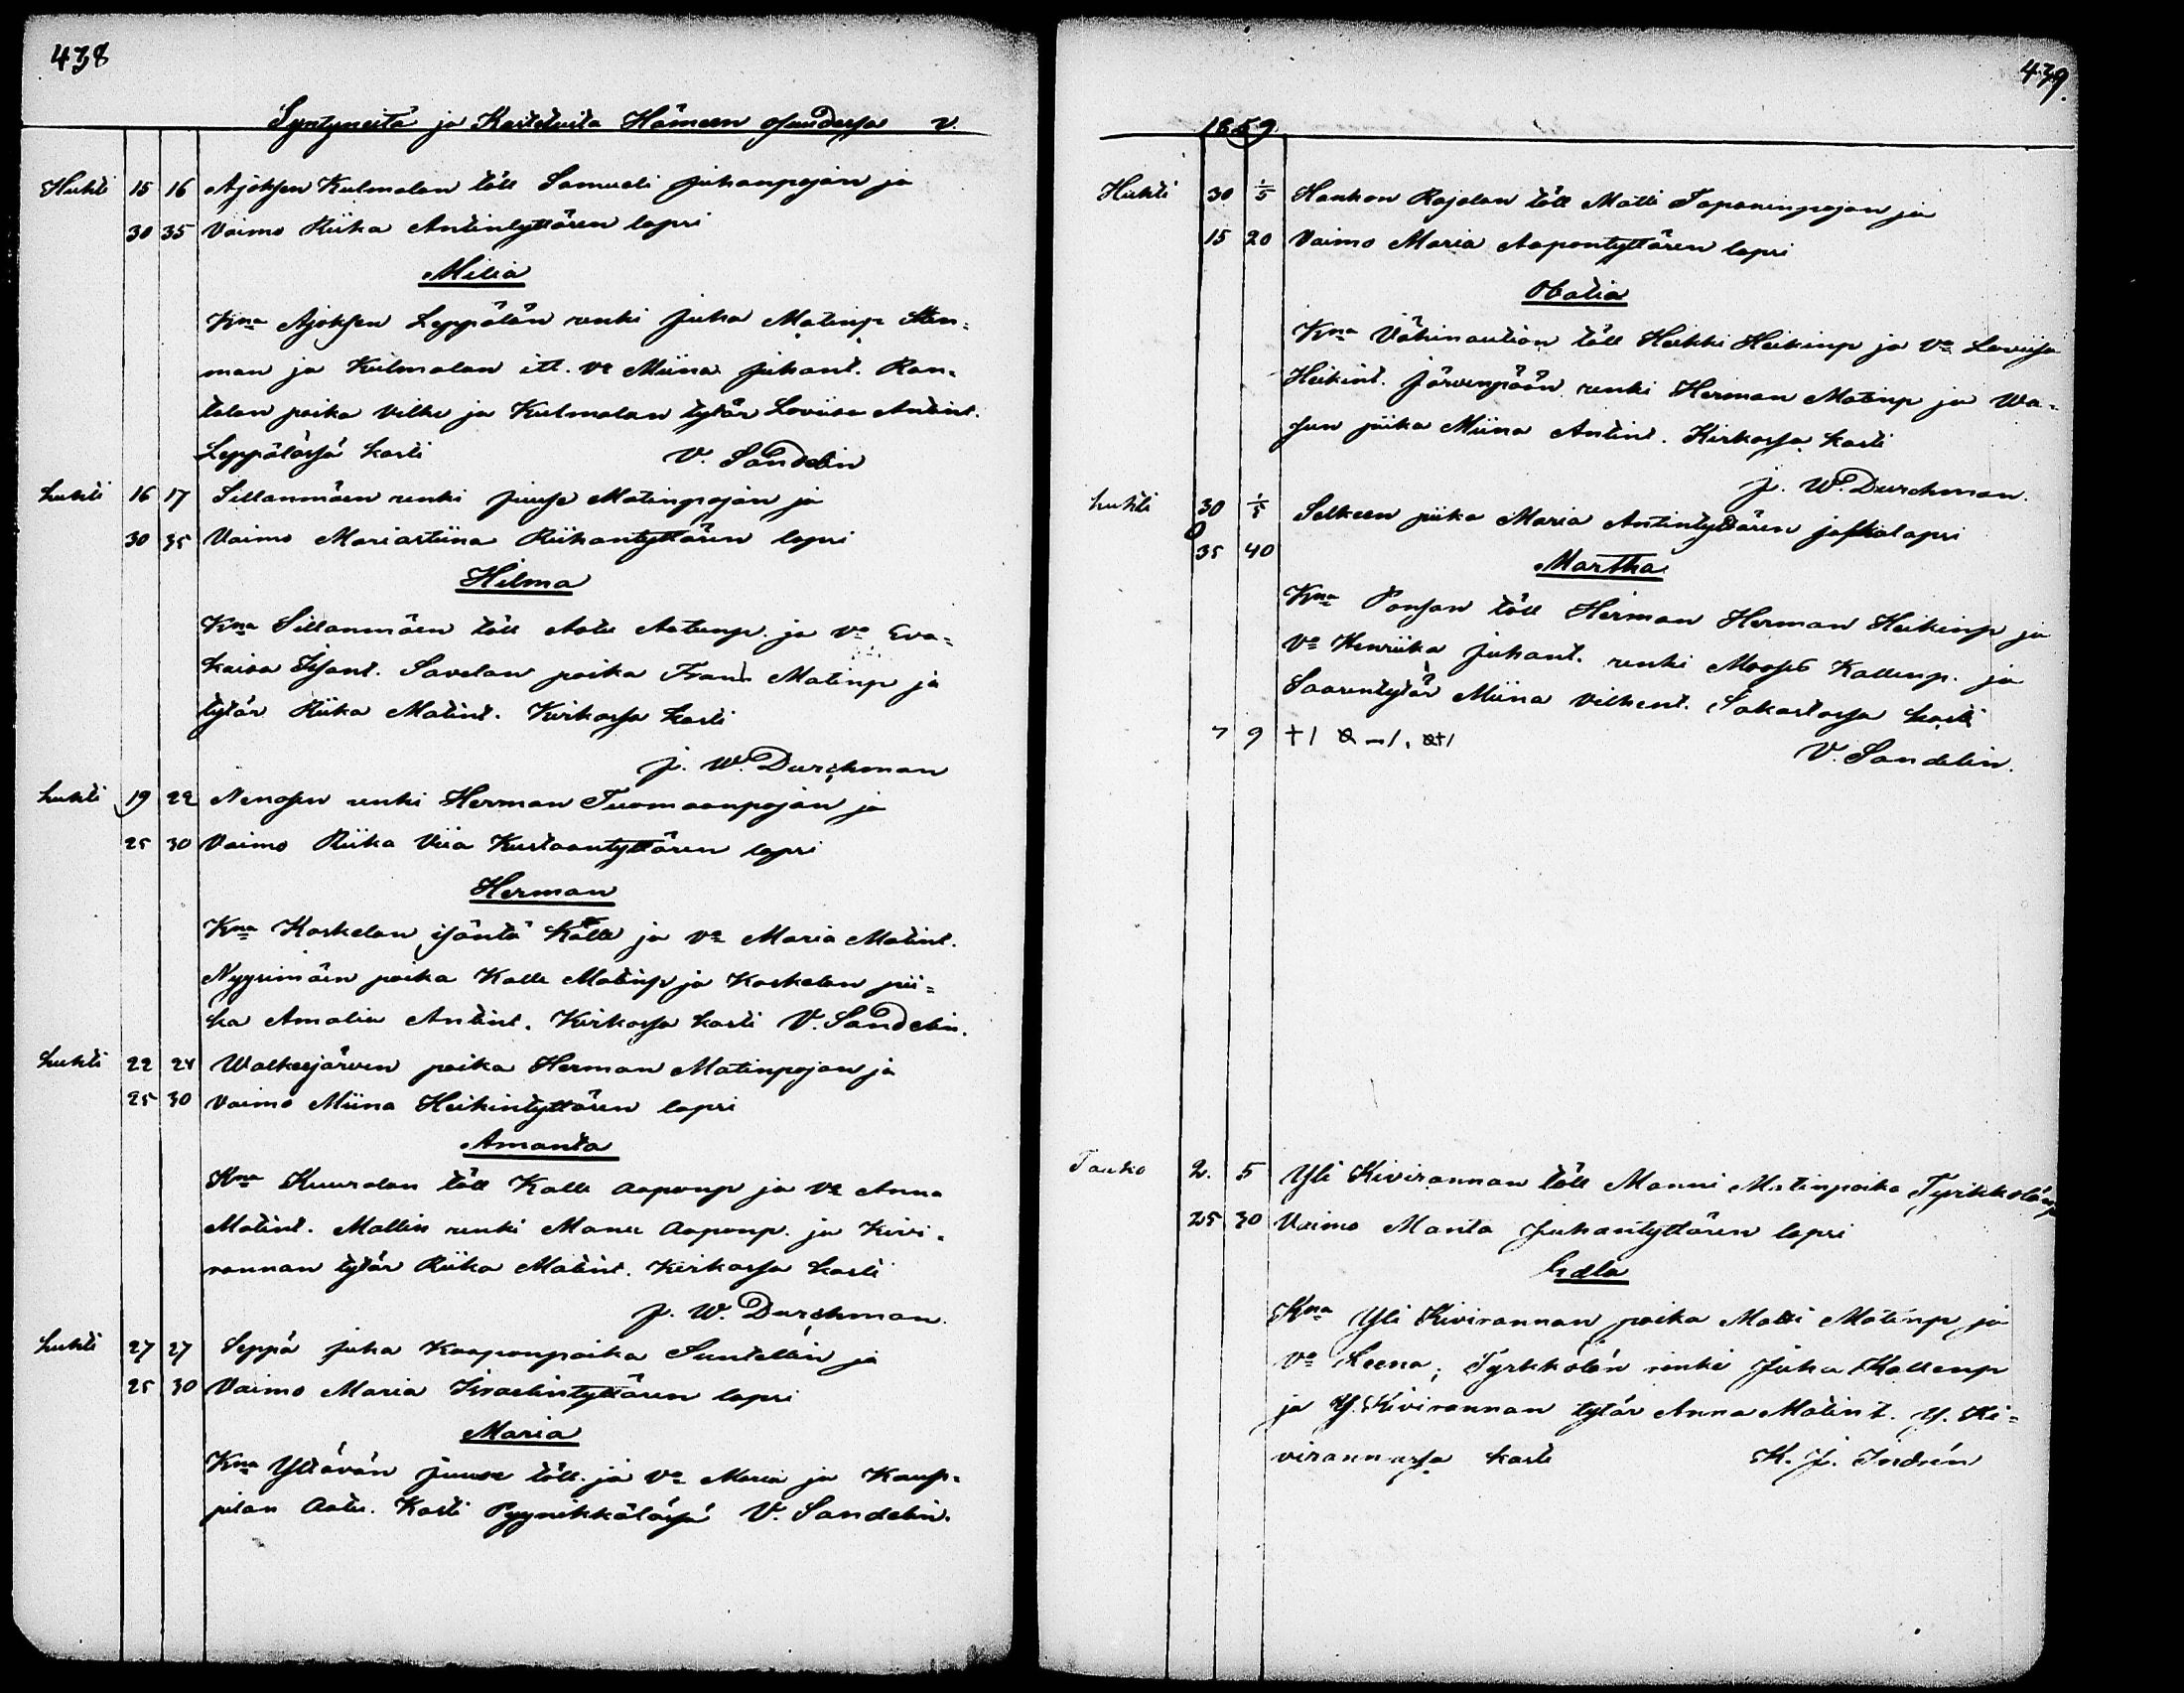 438
Syntyneitä ja Kastetuita Hämeen osundessa v.
Huhti 15 16 Ajoksen Kulmalan töll Samueli Juhanpojan ja
30 35 Vaimo Riika Antintyttären lapsi
Milia
Kna Ajoksen Leppälän renki Juha Matinp Sten=
man ja Kulmalan itl. va Miina Juhant. Ran=
talan poika Vilhe ja Kulmalan tytär Loviisa Antint.
Leppälässä kasti V. Sandelin
huhti 16 17 Sillanmäen renki Juuse Matinpojan ja
30 35 Vaimo Mariastiina Riihantyttären lapsi
Hilma
Kna Sillanmäen töll Aatu Aatunp. ja va Eva=
kaisa Isjant. Savelan poika Frans Matinp ja
tytär Riika Matint. Kirkossa kasti
J. W. Durchman
huhti 19 22 Nenosen renki Herman Tuomaanpojan ja
25 30 Vaimo Riika Viia Kustaantyttären lapsi
Herman
Kna Koskelan isäntä Kalle ja va Maria Matint.
Nyysimäen poika Kalle Matinp ja Koskelan pii=
ka Amalia Antint. Kirkossa kasti V. Sandelin.
huhti 22 24 Walkeejärven poika Herman Matinpojan ja
25 30 Vaimo Miina Heikintyttären lapsi
Amanta
Kna Kuuralan töll Kalle Aaponp ja va Anna
Matint. Mallin renki Manu Aaponp. ja Kivi=
rannan tytär Riika Matint. Kirkossa kasti
J. W. Durchman.
huhti 27 27 Seppä Juha Kaaponpoika Suntellin ja
25 30 Vaimo Maria Israelintyttären lapsi
Maria
Kna Yltävän Juuse töll. ja va Maria ja Kaup=
pilan Aatu. Kasti Pyynikkälässä V. Sandelin.
439.
1859
Huhti 30 1/5 Hankon Rajalan töll Matti Tapaninpojan ja
15 20 Vaimo Maria Aapontyttären lapsi
Otalia
Kna Vähinaution töll Heikki Heikinp ja va Loviisa
Heikint. Järvenpään renki Herman Matinp ja Wa=
sun piika Miina Antint. Kirkossa kasti
J. W. Durchman.
huhti 30 1/5 Selkeen piika Maria Antintyttären lapsi
0
35 40
Martha
Kna Ponsan töll Herman Herman Heikinp ja
va Henriika Juhant. renki Mooses Kallenp. ja
Saarentytär Miina Vilhent. Sakastossa kasti
7 9 +1
V. Sandelin.
Touko 2. 5 Yli Kivirannan töll Manni Matinpoika Tyrkkölän ja
25 30 Vaimo Manta Juhantyttären lapsi
Edla
Kna Yli Kivirannan poika Matti Matinp, ja
va Leena; Tyrkkölän renki Juha Kallenp
ja Y. Kivirannan tytär Anna Matint. Y. Ki=
virannassa kasti K. J. Indrén